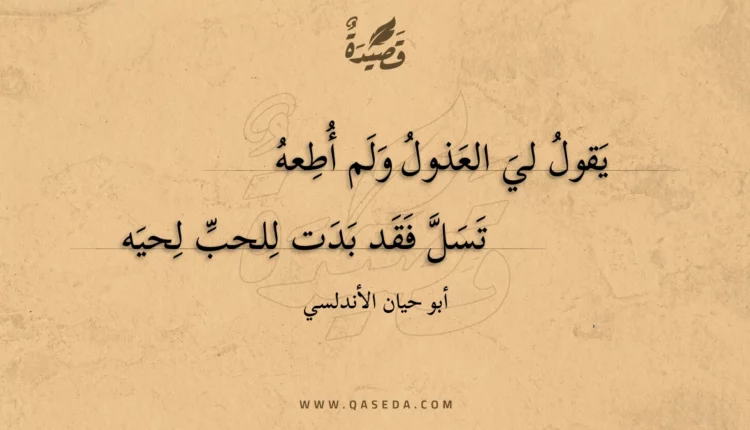 قَصِيدَةٌ
يَقولُ ليَ العَذولُ وَلَم أُطِعهُ
تَسَلَّ فَقَد بَدَت لِلحبِّ لِحيَه
أبو حيان الأندلسي
WWW.QASEDA.COM